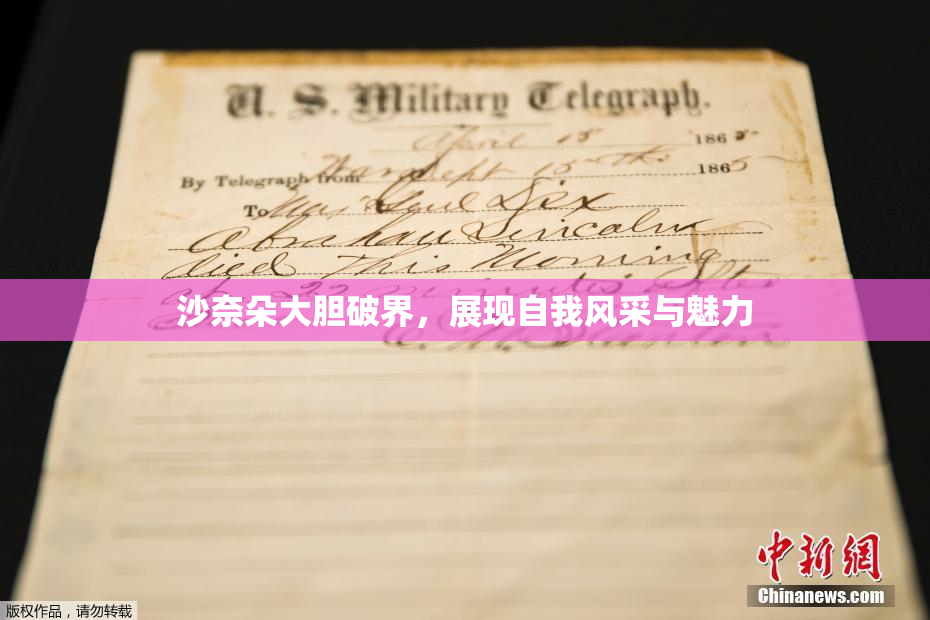 U. S. Military Telegraph.
April 15 1865
By Telegraph from War Dept 15th 1865
To Maj Genl Dix
Abraham Lincoln
died This Morning
at 22 minutes after
沙奈朵大胆破界，展现自我风采与魅力
中新网
Chinanews.com
版权作品，请勿转载